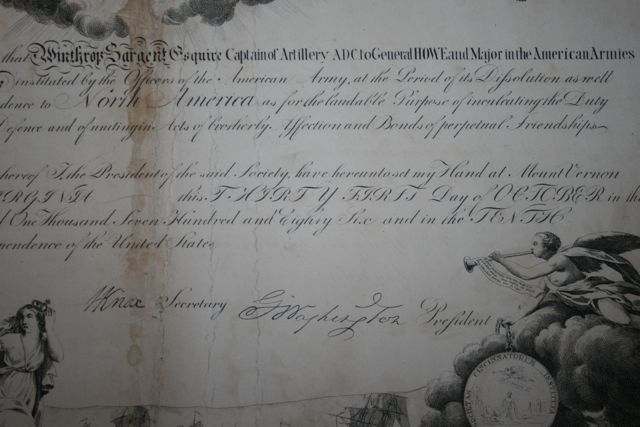 that Winthrop Sargent Esquire Captain of Artillery ADC to General HOWE and Major in the American Armies
instituted by the Officers of the American Army, at the Period of its Dissolution as well
dence to North America, as for the laudable Purpose of inculcating the Duty
efence and of uniting in Acts of brotherly Affection and Bonds of perpetual Friendship
hereof I, the President of the said Society, have hereunto set my Hand at Mount Vernon
IRGINIA this THIRTY FIRST Day of OCTOBER in the
One Thousand Seven Hundred and Eighty Six and in the TENTH
pendence of the United States
HKnox Secretary GWashington President